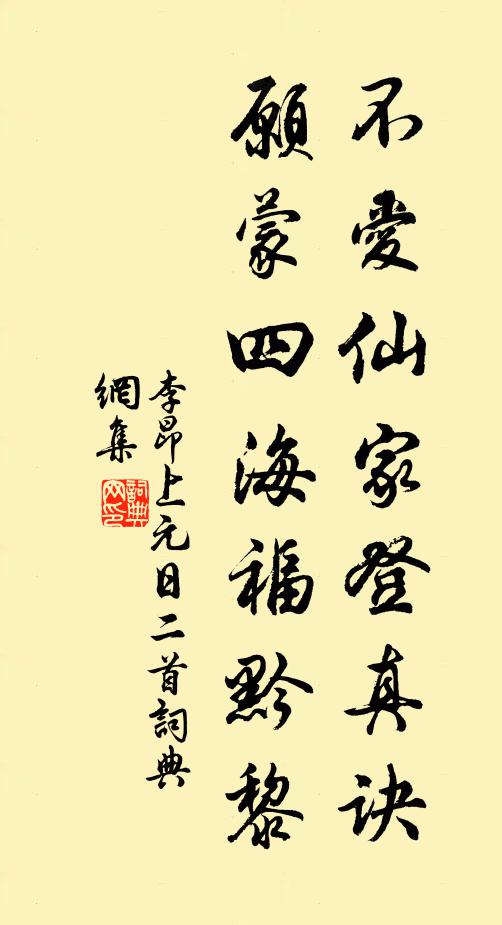 不愛仙家登真訣
願蒙四海福黔黎
李昂上元日二首詞典
網集
詞典
网印